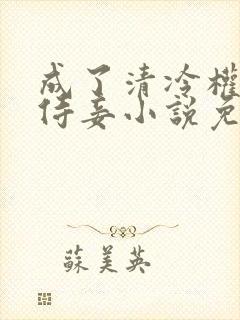 成了清冷權
侍妾小說免
蘇美英